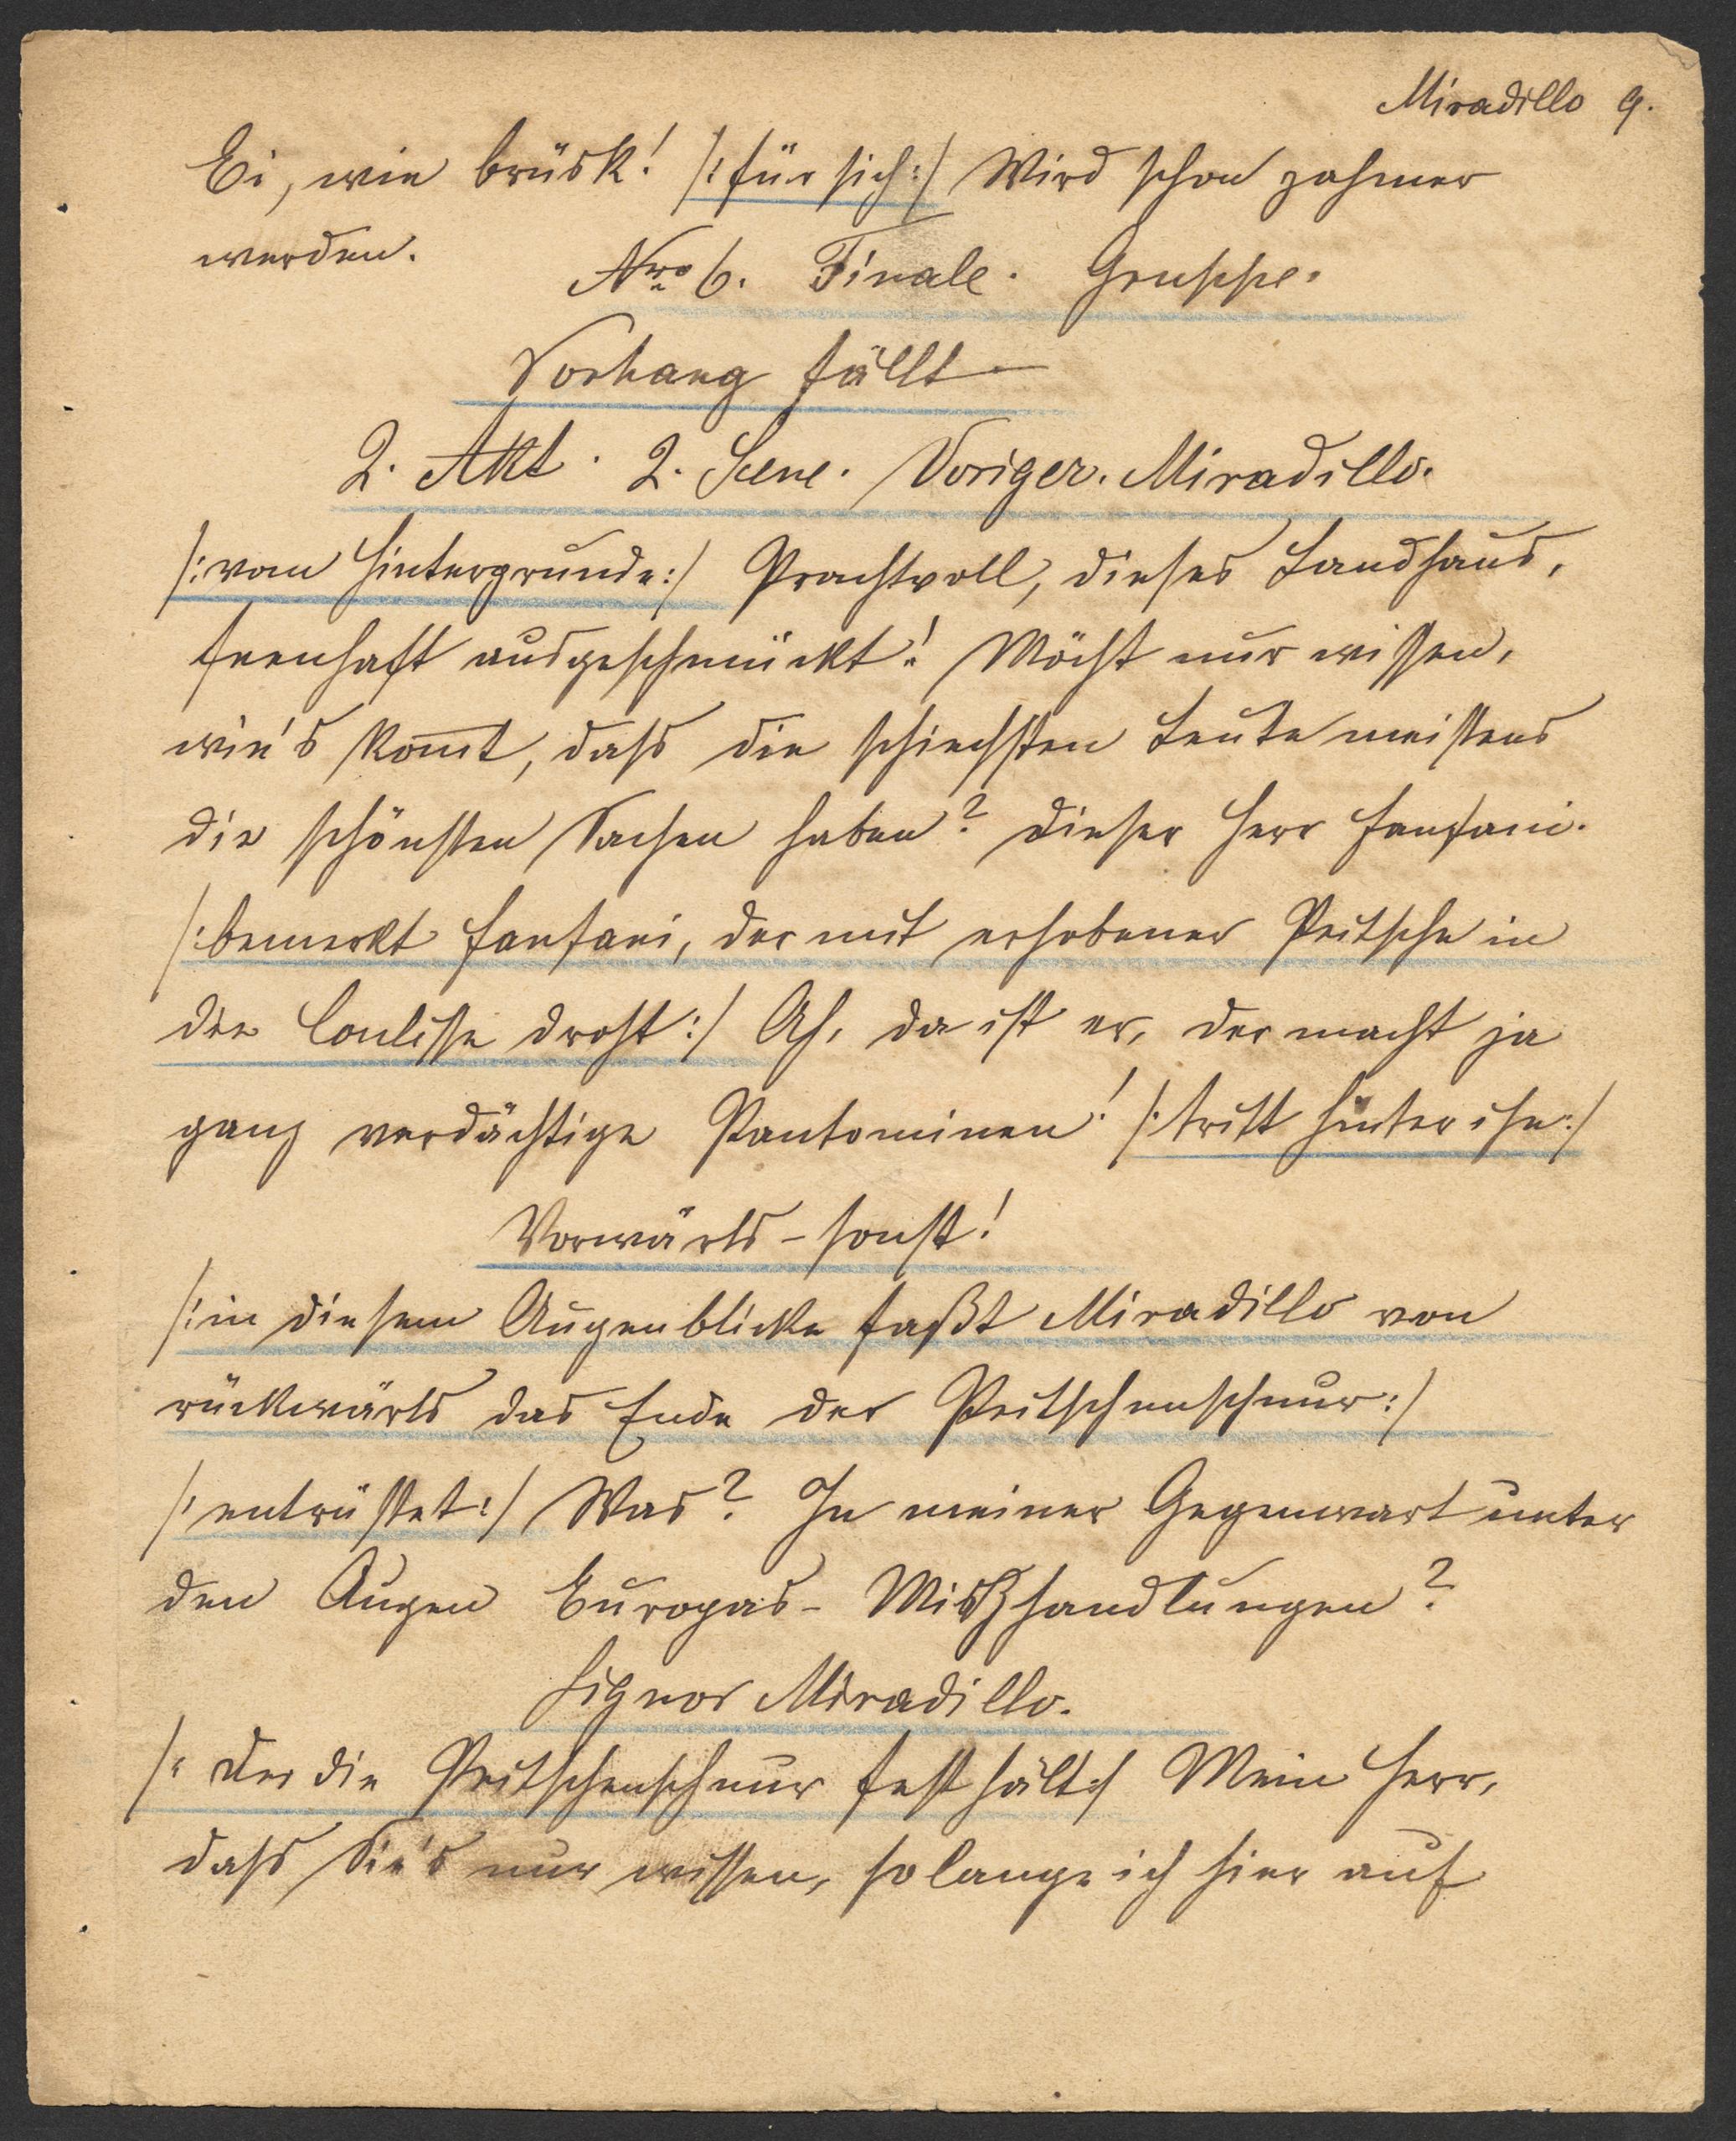 Miradillo 9.
Ei, wie brüsk! /: für sich :/ Wird schon zahmer
werden.
Nro 6. Finale. Gruppe.
Vorhang fällt
2. Akt. 2. Scene. Voriger. Miradillo.
/: vom Hintergrunde :/ Prachtvoll, dieses Landhaus,
feenhaft ausgeschmückt! Möcht nur wissen,
wie's kom̅t, dass die schiechsten Leute meistens
die schönsten Sachen haben? Dieser Herr Fanfani.
/: bemerkt Fanfani, der mit erhobener Peitsche in
die Coulisse droht :/ Ah, da ist er, der macht ja
ganz verdächtige Pantominen! /: tritt hinter ihn :/
Vorwärts - sonst!
/: in diesem Augenblicke faßt Miradillo von
rückwärts das Ende der Peitschenschnur :/
/: entrüstet :/ Was? In meiner Gegenwart unter
den Augen Europas - Mißhandlungen?
Signor Miradillo.
/: der die Peitschenschnur fest hält :/ Mein Herr,
dass Sie's nur wissen, so lange ich hier auf